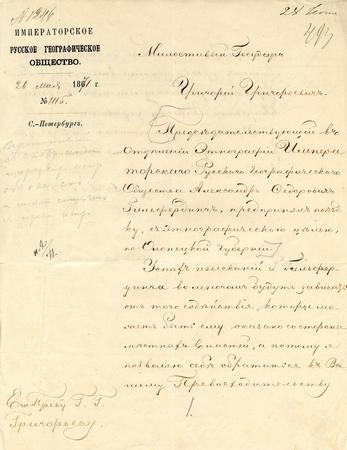 № 1346
ИМПЕРАТОРСКОЕ
РУССКОЕ ГЕОГРАФИЧЕСКОЕ
ОБЩЕСТВО.
26 Мая 1871 г.
№ 1116.
С.-Петербургъ.
24
493
Милостивый Государь
Григорій Григорьевичъ.
Предсѣдательствующій въ
Отдѣленіи Этнографіи Импера
торскаго Русскаго Географическаго
Общества Александръ Ѳедоровичъ
Гильфердингъ, предпринялъ поѣзд
ку, съ этнографическою цѣлью,
по Олонецкой Губерніи.
Успѣхъ изысканій Г. Гильфер-
динга во многомъ будутъ зависѣть
отъ того содѣйствія, которое мо-
жетъ быть ему оказано со стороны
мѣстныхъ властей, а потому я
позволяю себѣ обратиться къ Ва-
шему Превосходительству
Его Прев-у Г. Г.
Григорьеву.